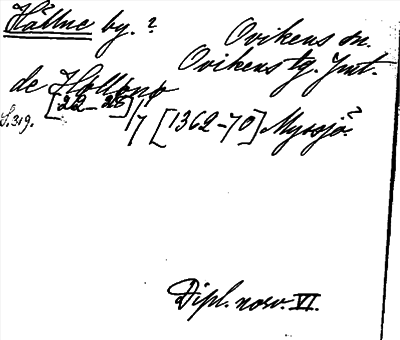 Hållne by. ?
Ovikens sn.
Ovikens tg. Jmt.
de Hollono
[22-25]/7 [1362-70] Myssjö?
S. 319.
Dipl. norv. VI.